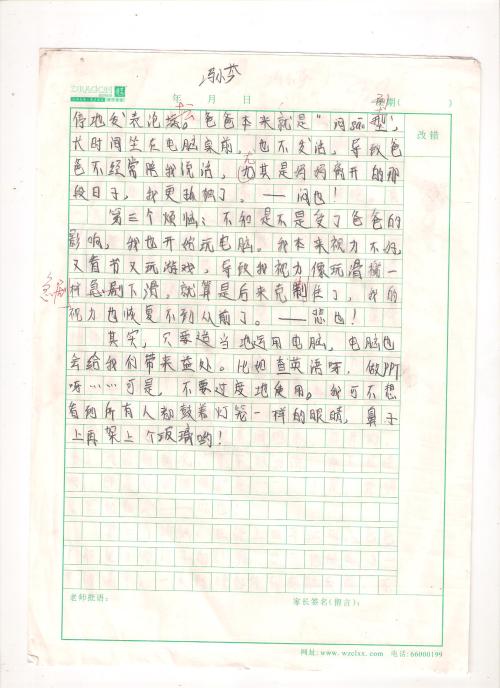 冯小芬
DRAGON
年 月 日 期( )
改错
停地发表泡坛。爸爸本来就是“闷sao型”,
长时间坐在电脑桌前,也不发话,导致爸
爸不经常陪我说话,尤其是妈妈离开的那
段日子,我更孤独了。——闷也!
第三个烦恼:不知是不是受了爸爸的
影响,我也开始玩电脑。我本来视力不好,
又看书又玩游戏,导致我视力像玩滑梯一
样急剧下滑。就算是后来克制住了,我的
急剧
视力也恢复不到从前了。——悲也!
其实,只要适当地运用电脑,电脑也
会给我们带来益处。比如查英语呀,做PPT
呀……可是,不要过度地使用。我可不想
看到所有人都鼓着灯笼一样的眼睛,鼻子
上再架上个玻璃哟!
老师批语:
家长签名(留言):
网址:www.wzclxx.com 电话:66000199